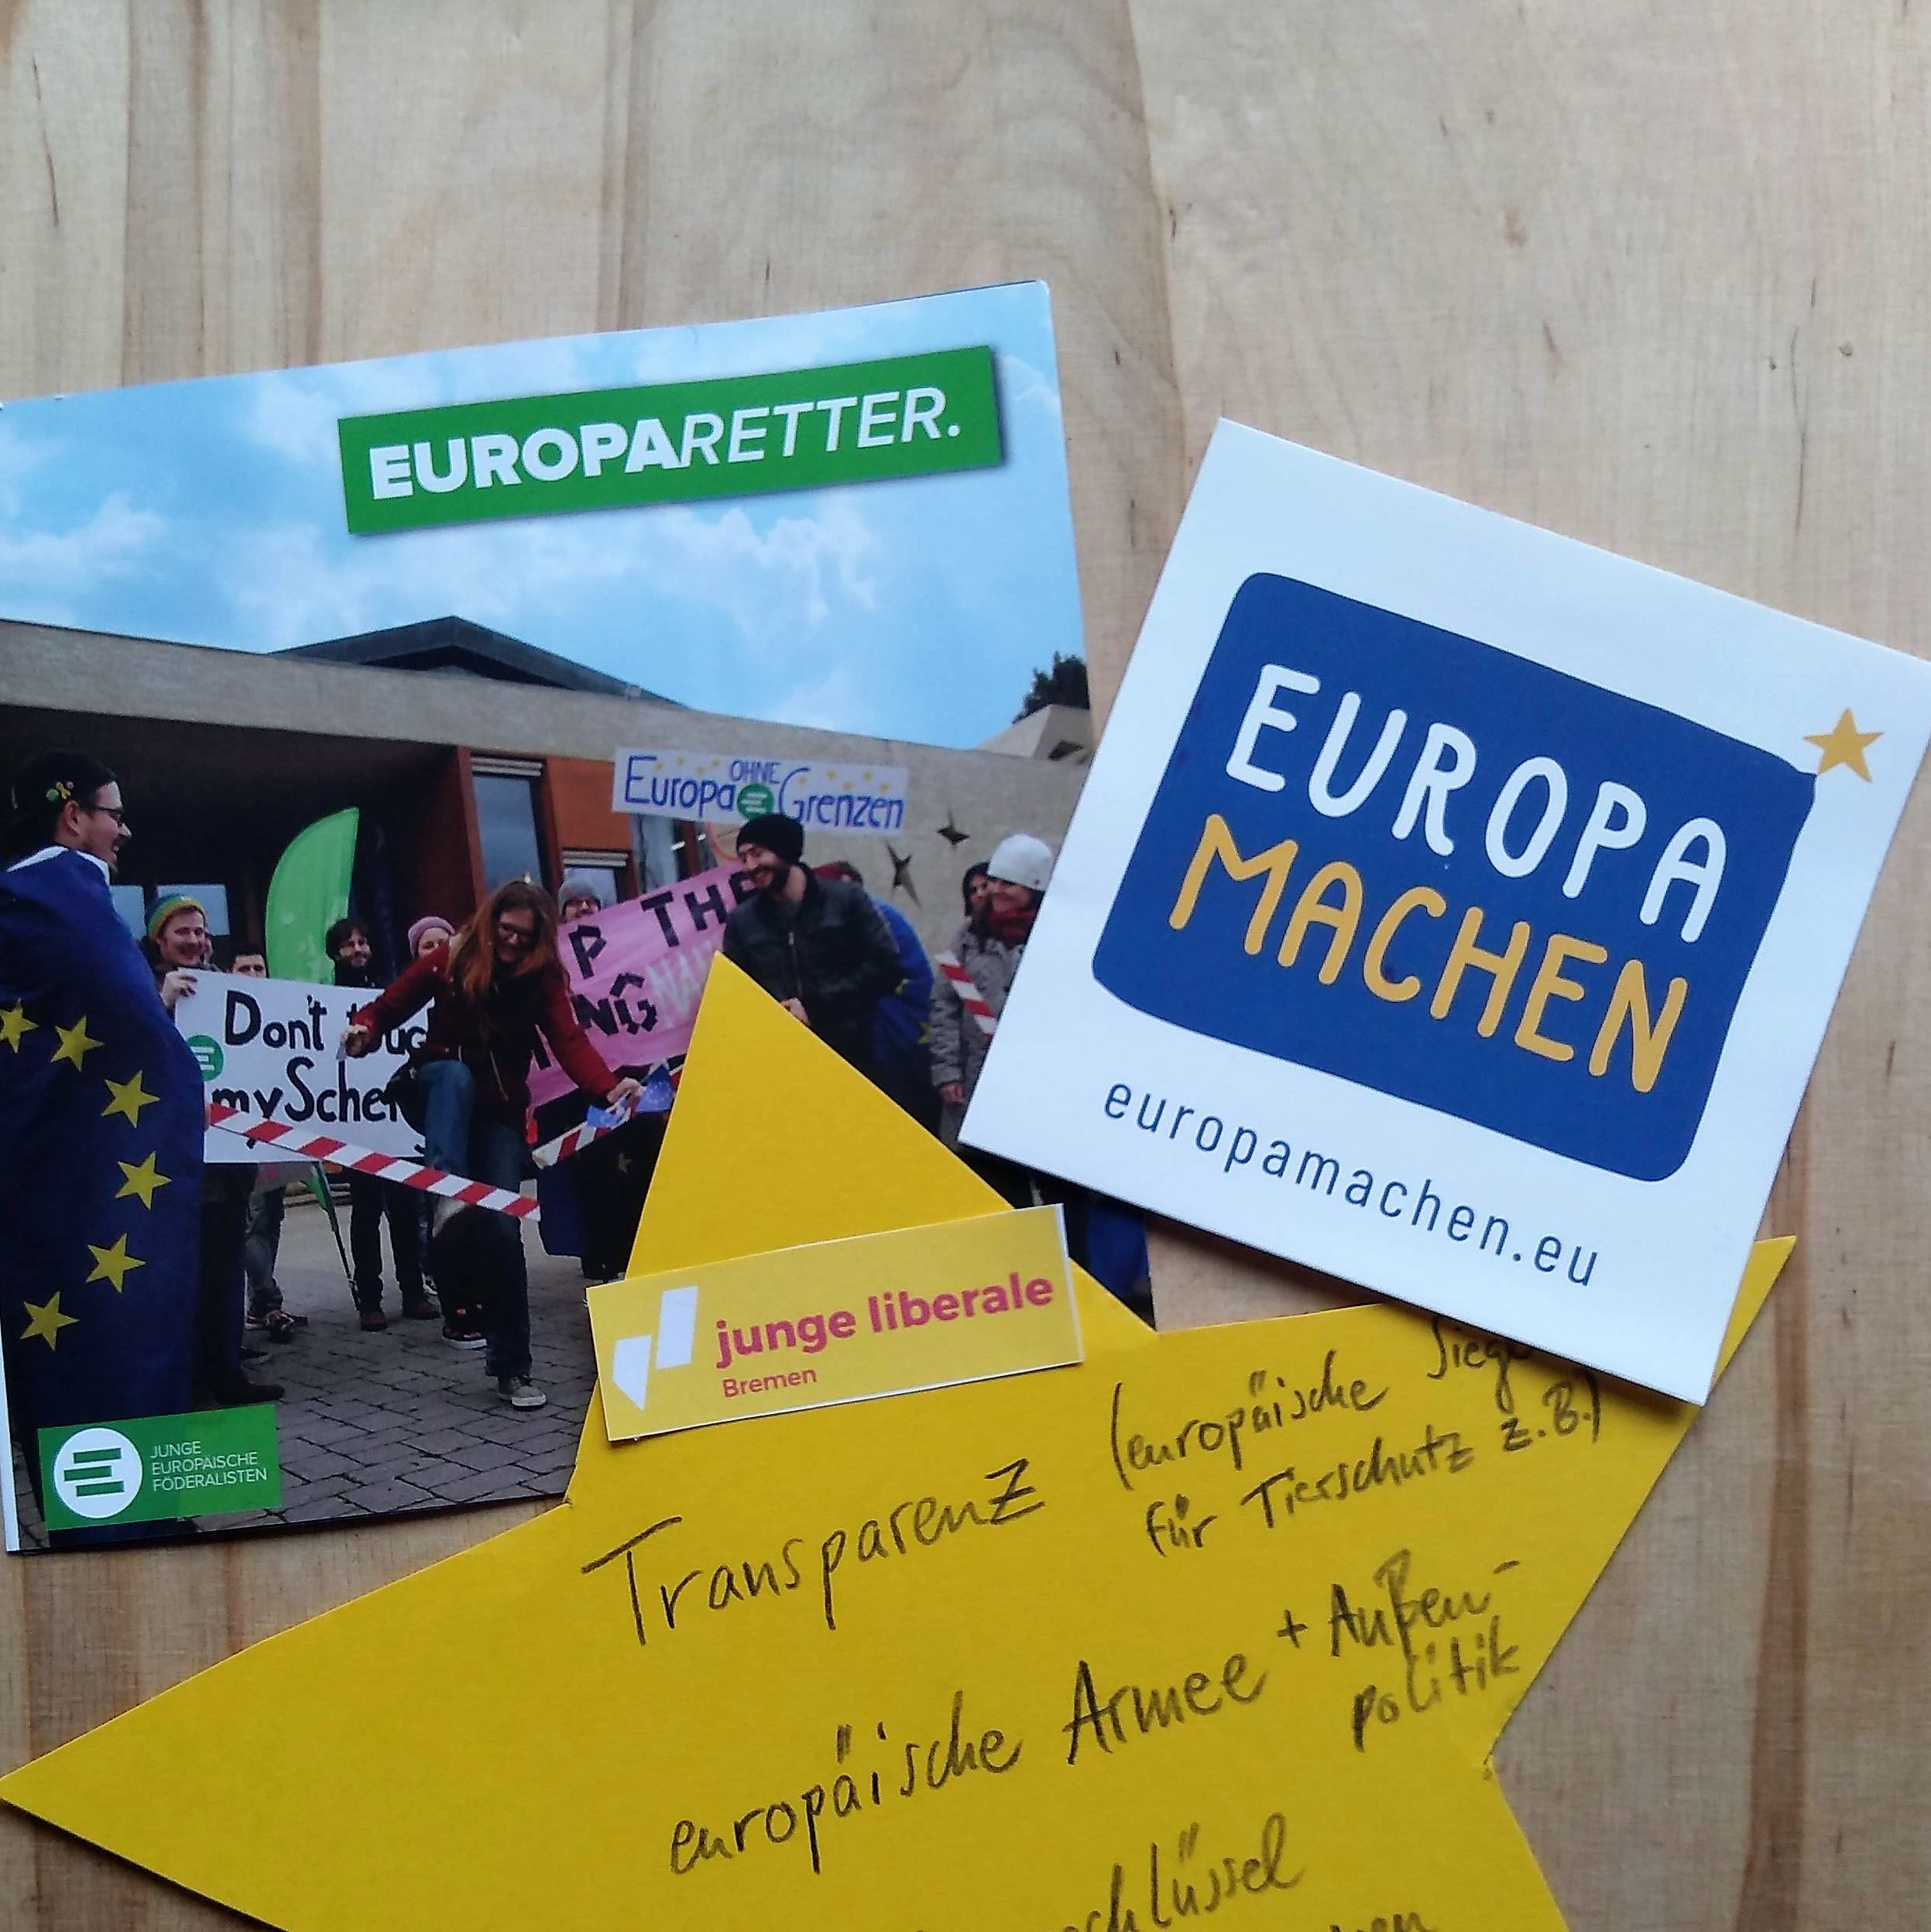 EUROPARETTER.
Europa OHNE Grenzen
P THE
NG
Don't
my
JUNGE
EUROPÄISCHE
FÖDERALISTEN
EUROPA
MACHEN
europamachen.eu
junge liberale
Bremen
Transparenz (europäische
für Tierschutz z.B.)
europäische Armee + Außen-
politik